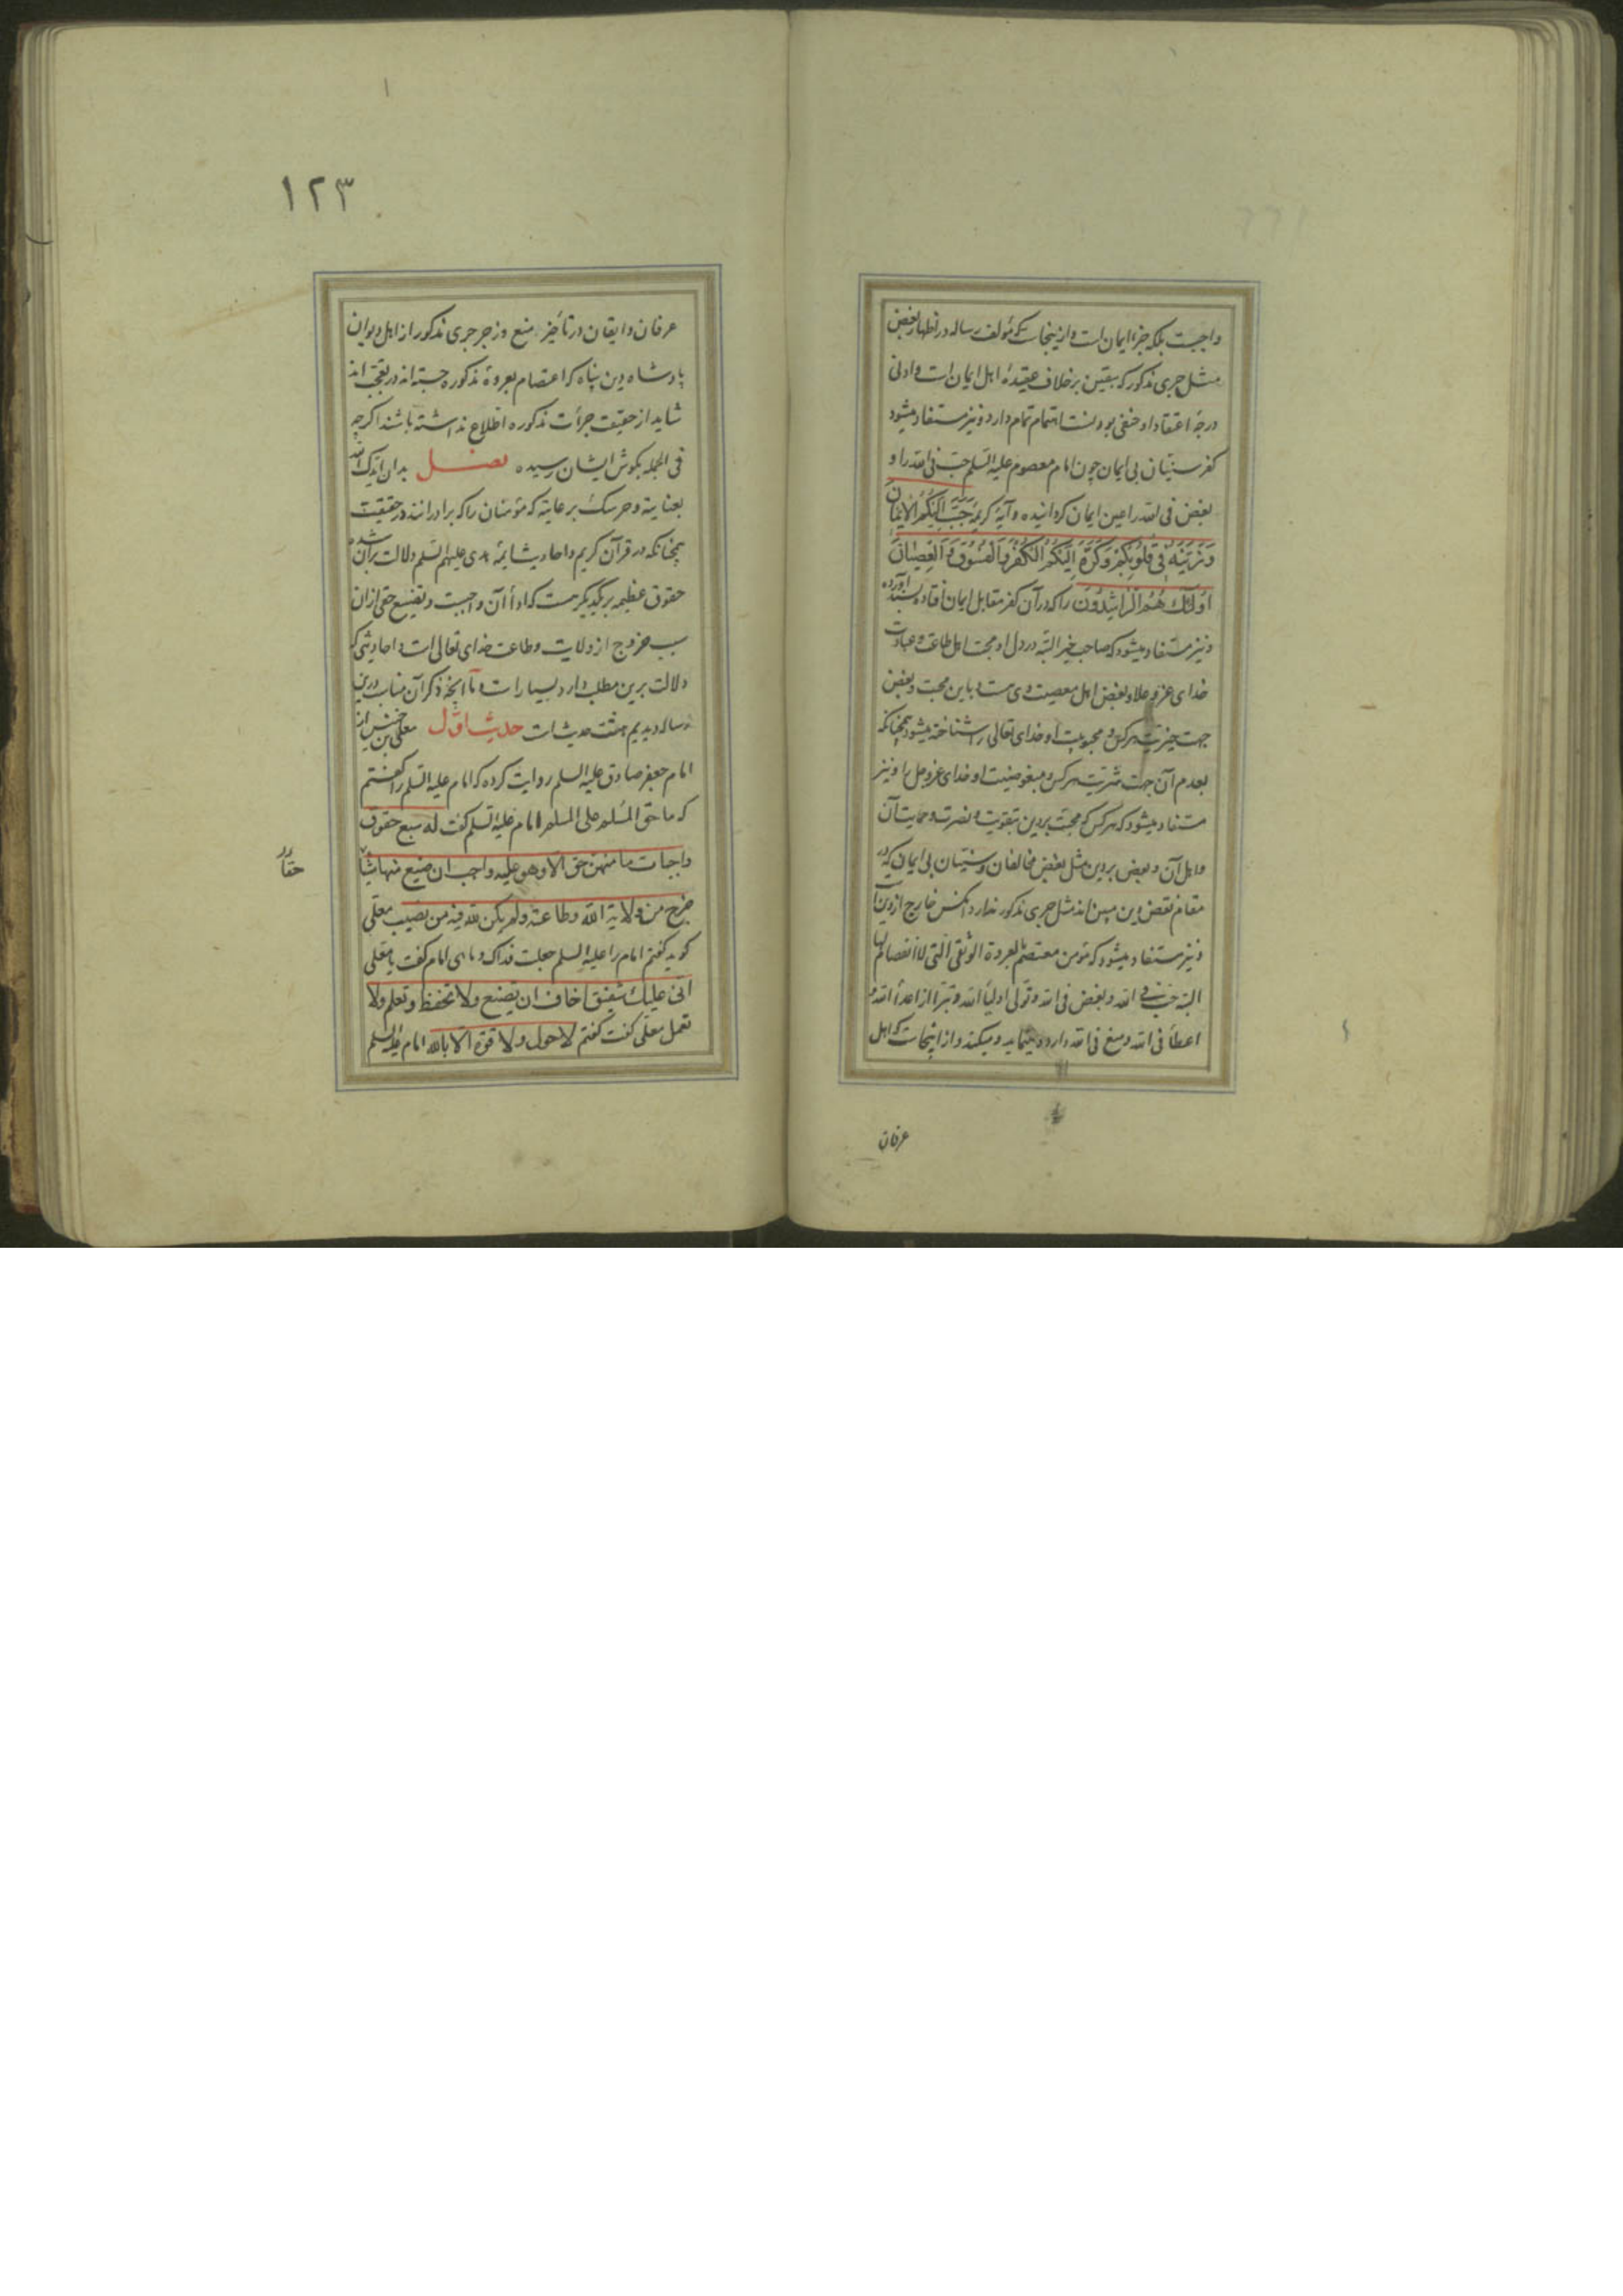 واجبست بلکه جزء ایمان است و ازینجاست که مؤلف رساله در اظهار بغض
مثل جری مذکور که بیقین برخلاف عقیدهٔ اهل ایمان است و ادنی
درجهٔ اعتقاد او حنفی بودنست اهتمام تمام دارد و نیز مستفاد میشود
کفر سنیان بی ایمان چون امام معصوم علیه السلم حب فی الله را و
بغض فی الله را عین ایمان کردانیده و آیهٔ کریمهٔ حَبَّبَ اِلَیْکُمُ الْاِیمَانَ
وَزَیَّنَهُ فِی قُلُوبِکُمْ وَکَرَّهَ اِلَیْکُمُ الْکُفْرَ وَالْفُسُوقَ وَالْعِصْیَانَ
اُولٰئِکَ هُمُ الرَّاشِدُونَ را که در آن کفر مقابل ایمان افتاده بسند آورده
و نیز مستفاد میشود که صاحب خیر البته در دل او محبت اهل طاعت و عبادت
خدای عز و علا و بغض اهل معصیت وی هست و باین محبت و بغض
جهت خیریت هرکس و محبوبیت او خدای تعالی را شناخته میشود همچنانکه
بعدم آن جهت شریت هرکس و مبغوضیت او خدای عز و جل را و نیز
مستفاد میشود که هرکس که محبت بر دین بتقویت و نصرت و حمایت آن
و اهل آن و بغض بر دین مثل بغض مخالفان و سنیان بی ایمانی که در
مقام نقض دین مبین اند مثل جری مذکور ندارد آنکس خارج از دین است
و نیز مستفاد میشود که مؤمن معتصم بالعروة الوثقی التی لا انفصام لها
البته حب فی الله و بغض فی الله و تولی اولیأ الله و تبرا از اعدأ الله و
اعطأ فی الله و منع فی الله دارد و مینماید و میکند و از اینجاست که اهل
عرفان
١٢٣
عرفان و ایقان در تأخیر منع و زجر جری مذکور از اهل دیوان
پادشاه دین پناه که اعتصام بعروهٔ مذکوره جسته اند در تعجب اند
شاید از حقیقت جرأت مذکوره اطلاع نداشته باشند اکرچه
فی الجمله بکوش ایشان رسیده فصل بدان ایدک الله
بعنایته و حرسک برعایته که مؤمنان را که برادرانند در حقیقت
همچنانکه در قرآن کریم و احادیث ایمهٔ هدی علیهم السلم دلالت بر آن شده
حقوق عظیمه بر یکدیکر هست که ادأ آن واجبست و تضییع حقی از آن
سبب خروج از ولایت و طاعت خدای تعالی است و احادیثی که
دلالت برین مطلب دارد بسیار است و اما آنچه ذکر آن مناسب درین
رساله دیدیم هشت حدیث است حدیث اوّل معلی بن خنیس از
امام جعفر صادق علیه السلم روایت کرده که امام علیه السلم را کفتم
که ما حق المسلم علی المسلم امام علیه السلم کفت له سبع حقوق
واجبات ما منهن حق الا وهو علیه واجب ان ضیع منها شیئا
حقا
خرج من ولایة الله وطاعته ولم یکن لله فیه من نصیب معلی
کوید کفتم امام را علیه السلم جعلت فداک و ما هی امام کفت یا معلی
انی علیک شفیق اخاف ان تضیع ولا تحفظ وتعلم ولا
تعمل معلی کفت کفتم لا حول ولا قوة الا بالله امام علیه السلم